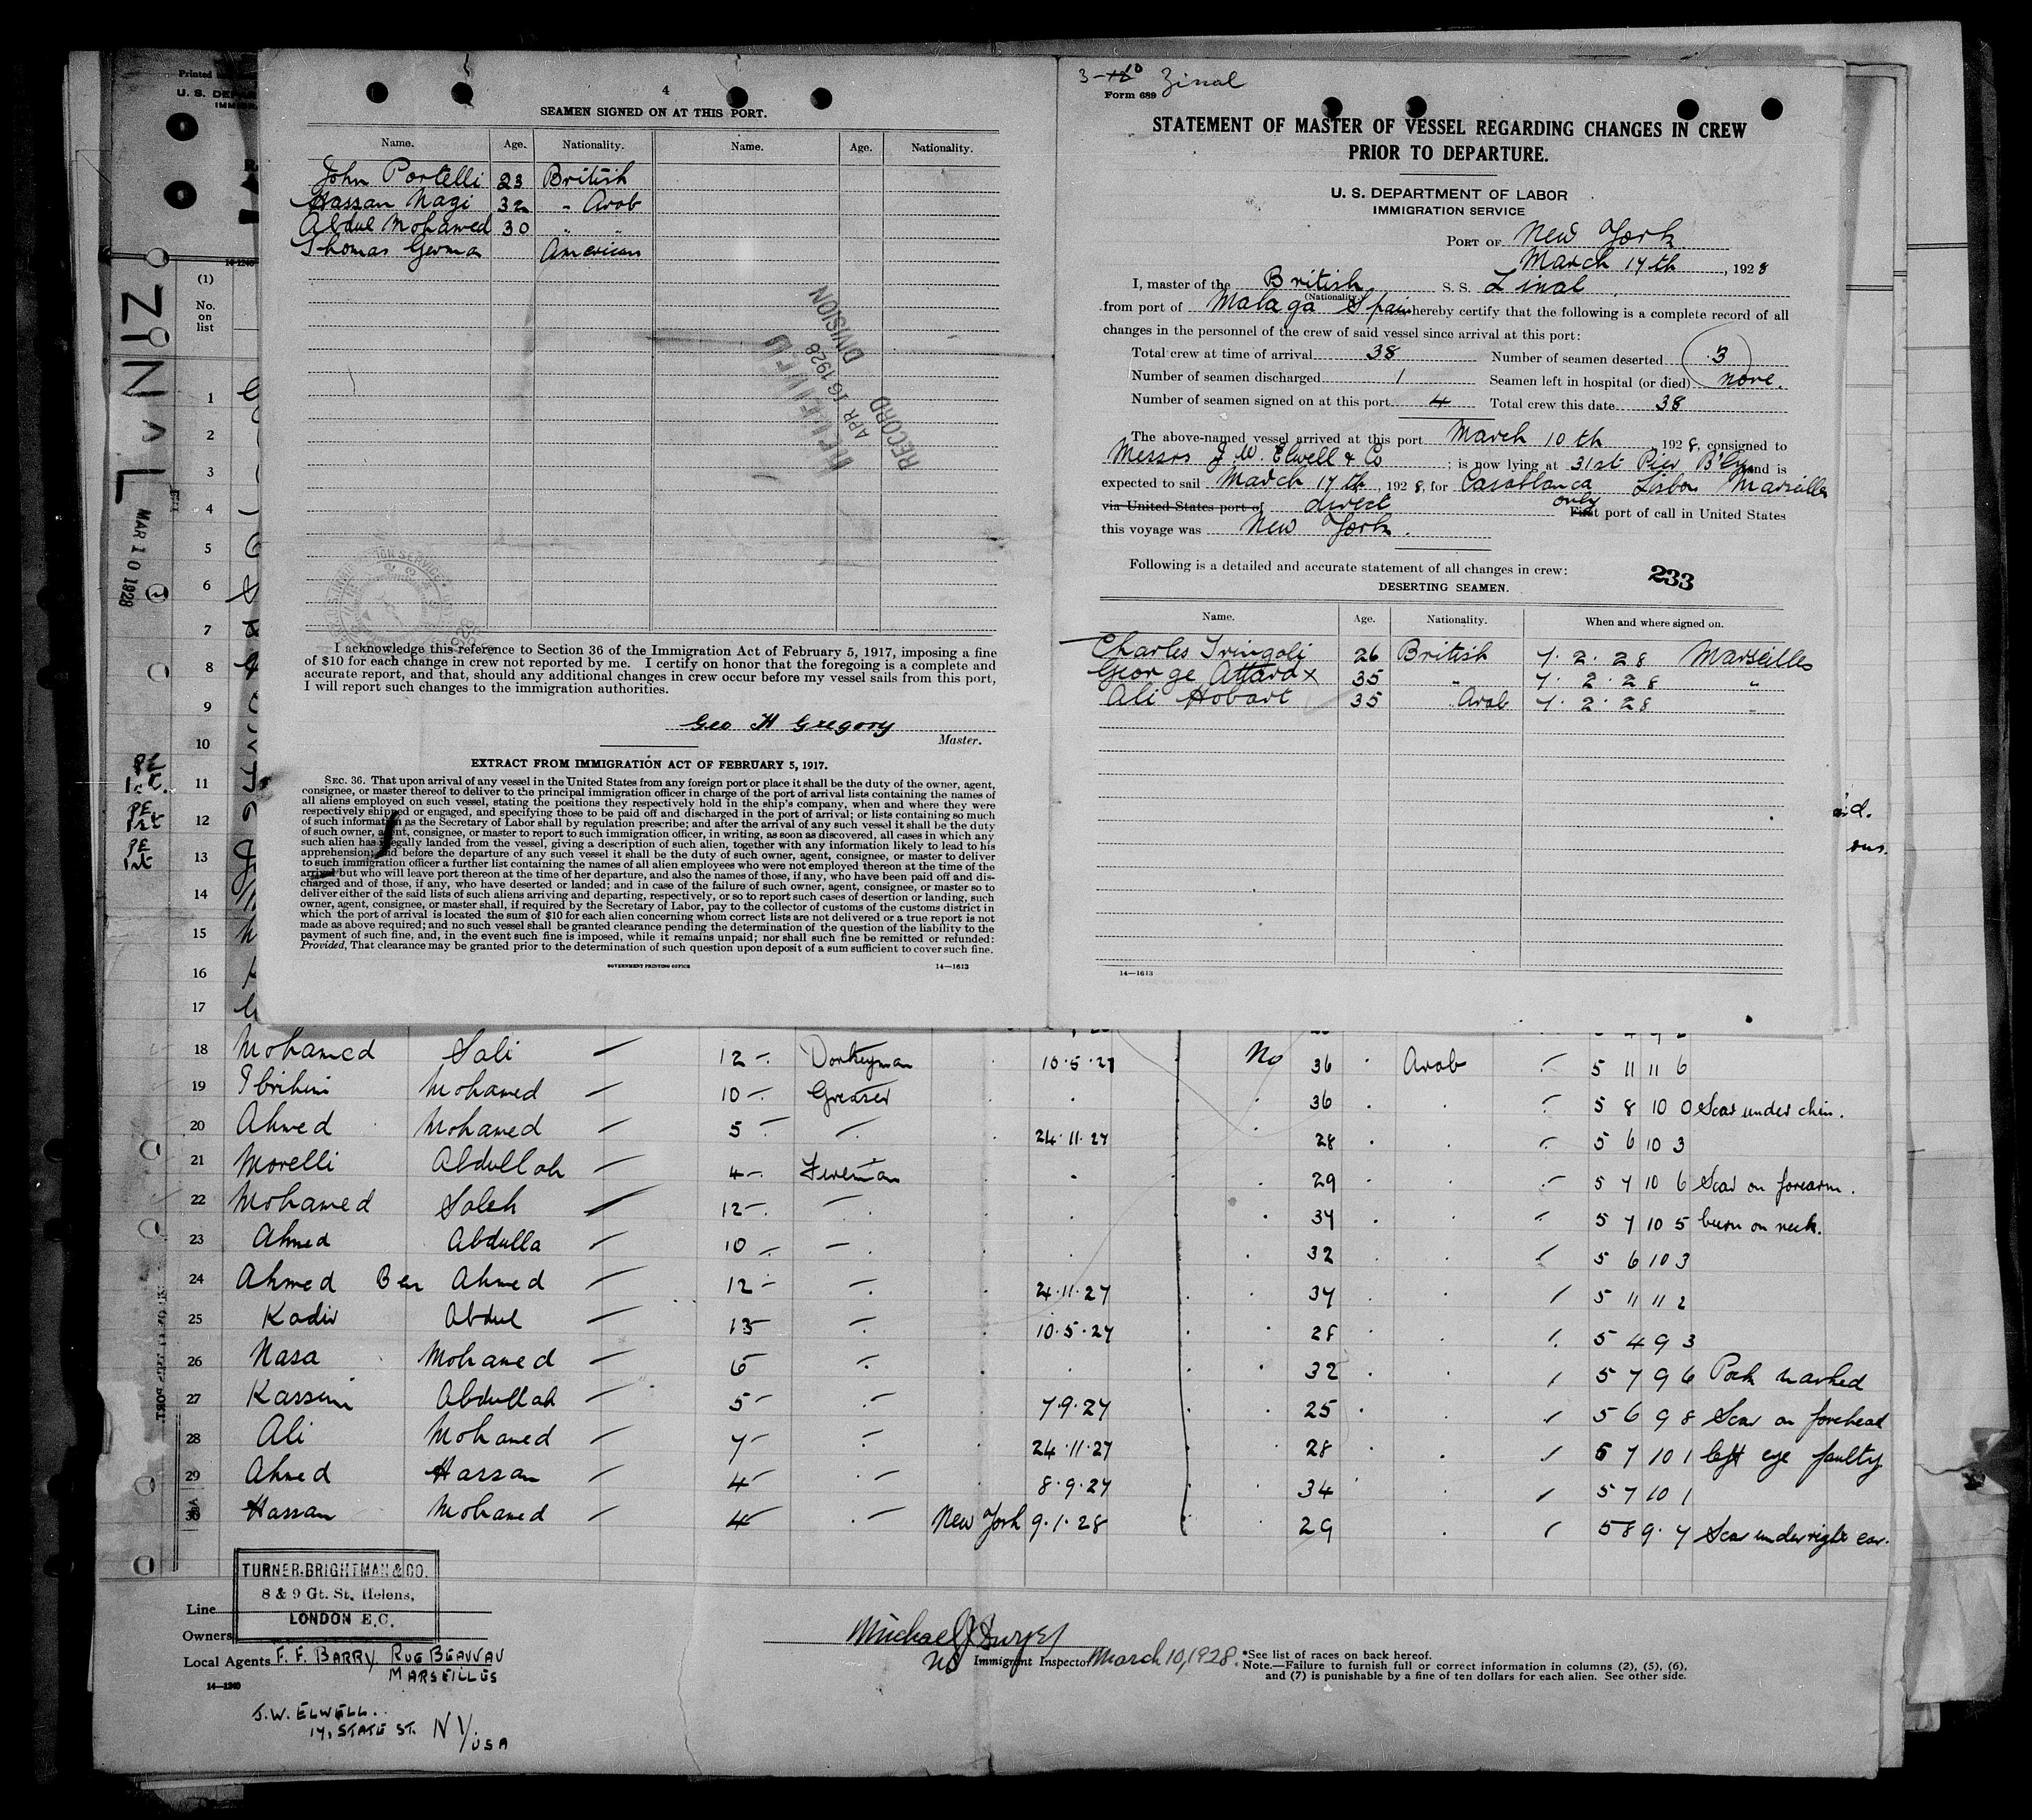 4
SEAMEN SIGNED ON AT THIS PORT.
Name. Age. Nationality. Name. Age. Nationality.
John Portelli 23 British
Hassan Nagi 32 " Arab
Abdul Mohamed 30 " "
Thomas German American
RECEIVED
APR 16 1928
RECORD DIVISION
I acknowledge this reference to Section 36 of the Immigration Act of February 5, 1917, imposing a fine
of $10 for each change in crew not reported by me. I certify on honor that the foregoing is a complete and
accurate report, and that, should any additional changes in crew occur before my vessel sails from this port,
I will report such changes to the immigration authorities.
Geo H Gregory
Master.
EXTRACT FROM IMMIGRATION ACT OF FEBRUARY 5, 1917.
SEC. 36. That upon arrival of any vessel in the United States from any foreign port or place it shall be the duty of the owner, agent,
consignee, or master thereof to deliver to the principal immigration officer in charge of the port of arrival lists containing the names of
all aliens employed on such vessel, stating the positions they respectively hold in the ship's company, when and where they were
respectively shipped or engaged, and specifying those to be paid off and discharged in the port of arrival; or lists containing so much
of such information as the Secretary of Labor shall by regulation prescribe; and after the arrival of any such vessel it shall be the duty
of such owner, agent, consignee, or master to report to such immigration officer, in writing, as soon as discovered, all cases in which any
such alien has illegally landed from the vessel, giving a description of such alien, together with any information likely to lead to his
apprehension; and before the departure of any such vessel it shall be the duty of such owner, agent, consignee, or master to deliver
to such immigration officer a further list containing the names of all alien employees who were not employed thereon at the time of the
arrival but who will leave port thereon at the time of her departure, and also the names of those, if any, who have been paid off and dis-
charged and of those, if any, who have deserted or landed; and in case of the failure of such owner, agent, consignee, or master so to
deliver either of the said lists of such aliens arriving and departing, respectively, or so to report such cases of desertion or landing, such
owner, agent, consignee, or master shall, if required by the Secretary of Labor, pay to the collector of customs of the customs district in
which the port of arrival is located the sum of $10 for each alien concerning whom correct lists are not delivered or a true report is not
made as above required; and no such vessel shall be granted clearance pending the determination of the question of the liability to the
payment of such fine, and, in the event such fine is imposed, while it remains unpaid; nor shall such fine be remitted or refunded:
Provided, That clearance may be granted prior to the determination of such question upon deposit of a sum sufficient to cover such fine.
GOVERNMENT PRINTING OFFICE 14—1613
3-10 Zinal
Form 689
STATEMENT OF MASTER OF VESSEL REGARDING CHANGES IN CREW
PRIOR TO DEPARTURE.
U. S. DEPARTMENT OF LABOR
IMMIGRATION SERVICE
PORT OF New York
March 17th, 1928
I, master of the British S. S. Zinal
(Nationality.)
from port of Malaga Spain hereby certify that the following is a complete record of all
changes in the personnel of the crew of said vessel since arrival at this port:
Total crew at time of arrival 38 Number of seamen deserted 3
Number of seamen discharged 1 Seamen left in hospital (or died) none.
Number of seamen signed on at this port 4 Total crew this date 38
The above-named vessel arrived at this port March 10th, 1928, consigned to
Messrs J W. Elwell & Co; is now lying at 31st Pier B'lyn and is
expected to sail March 17th, 1928, for Casablanca Lisbon Marseilles
via United States port of direct only First port of call in United States
this voyage was New York.
Following is a detailed and accurate statement of all changes in crew:
233
DESERTING SEAMEN.
Name. Age. Nationality. When and where signed on.
Charles Tringali 26 British 7.2.28 Marseilles
George Attard x 35 " 7.2.28 "
Ali Hobart 35 " Arab 7.2.28 "
14—1613
Printed
U. S.
(1)
No.
on
list
ZINAL
MAR 10 1928
1
2
3
4
5
6
7
8
9
10
11
12
13
14
15
16
17
18 Mohamed Sali 12 Donkeyman 10.5.27 No 36 Arab 5 11 11 6
19 Ibrihim Mohamed 10 Greaser 36 5 8 10 0 Scar under chin.
20 Ahmed Mohamed 5 24.11.27 28 5 6 10 3
21 Morelli Abdullah 4 Fireman 29 5 7 10 6 Scar on forearm.
22 Mohamed Saleh 12 37 5 7 10 5 burn on neck.
23 Ahmed Abdulla 10 32 5 6 10 3
24 Ahmed Ben Ahmed 12 24.11.27 37 5 11 11 2
25 Kadir Abdul 13 10.5.27 28 5 4 9 3
26 Nasa Mohamed 6 32 5 7 9 6 Pock marked
27 Kassim Abdullah 5 7.9.27 25 5 6 9 8 Scar on forehead
28 Ali Mohamed 7 24.11.27 28 5 7 10 1 left eye faulty
29 Ahmed Hassan 4 8.9.27 34 5 7 10 1
30 Hassan Mohamed 4 New York 9.1.28 29 5 8 9.7 Scar under right ear.
TURNER.BRIGHTMAN & CO.
8 & 9 Gt. St. Helens,
LONDON E.C.
Line
Owners
Local Agents F. F. BARRY RUE BEAUVAU
MARSEILLES
14—1240
J.W. ELWELL..
17, STATE ST. NY/USA
Immigrant Inspector March 10, 1928.
*See list of races on back hereof.
Note.—Failure to furnish full or correct information in columns (2), (5), (6),
and (7) is punishable by a fine of ten dollars for each alien. See other side.